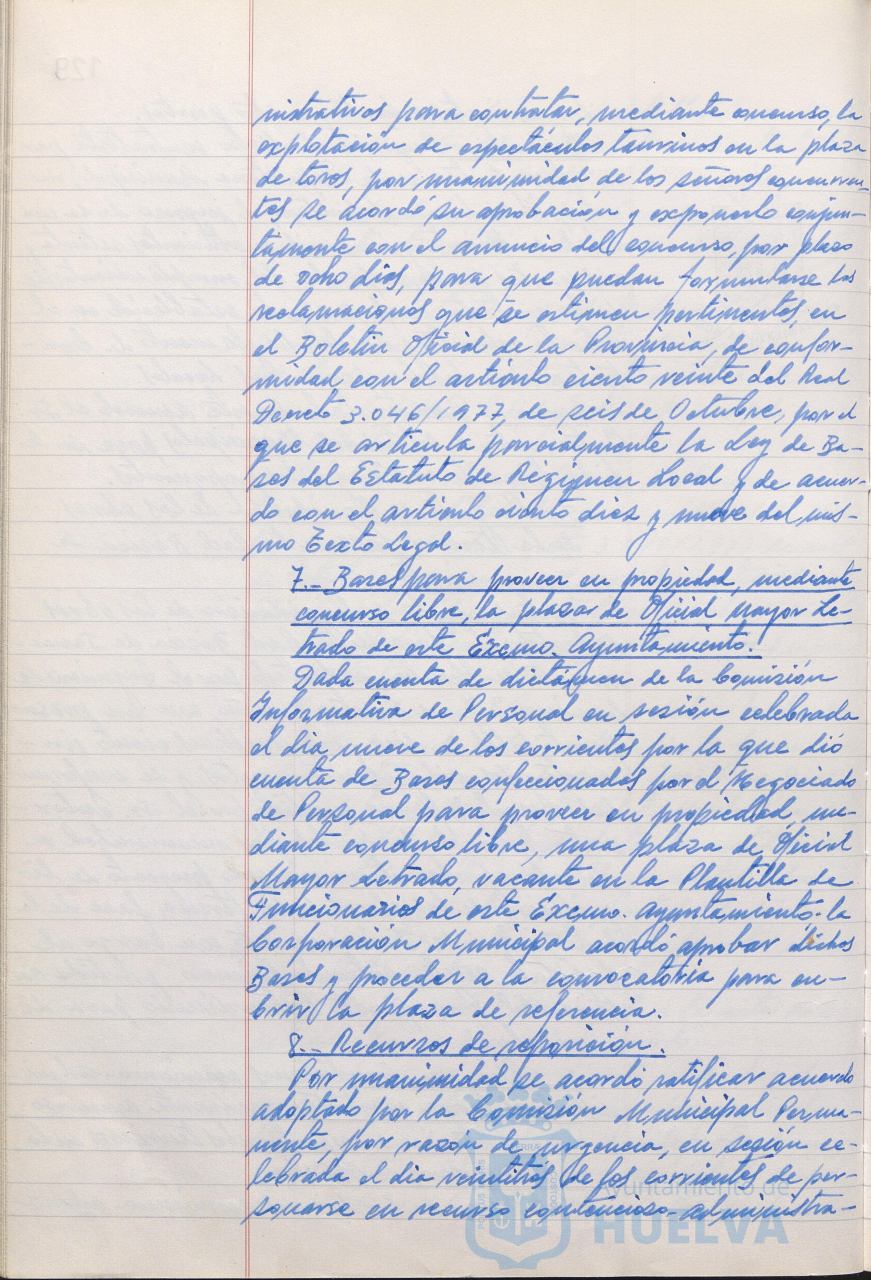 nistrativos para contratar, mediante concurso, la
explotación de espectáculos taurinos en la plaza
de toros, por unanimidad de los señores concurren-
tes se acordó su aprobación y exponerlo conjun-
tamente con el anuncio del concurso, por plazo
de ocho días, para que puedan formularse las
reclamaciones que se estimen pertinentes, en
el Boletín Oficial de la Provincia, de confor-
midad con el artículo ciento veinte del Real
Decreto 3.046/1977, de seis de Octubre, por el
que se articula parcialmente la Ley de Ba-
ses del Estatuto de Régimen Local y de acuer-
do con el artículo ciento diez y nueve del mis-
mo Texto Legal.
7.- Bases para proveer en propiedad, mediante
concurso libre, la plaza de Oficial Mayor Le-
trado de este Excmo. Ayuntamiento.
Dada cuenta de dictámen de la Comisión
Informativa de Personal en sesión celebrada
el día nueve de los corrientes por la que dió
cuenta de Bases confeccionadas por el Negociado
de Personal para proveer en propiedad, me-
diante concurso libre, una plaza de Oficial
Mayor Letrado, vacante en la Plantilla de
Funcionarios de este Excmo. Ayuntamiento, la
Corporación Municipal acordó aprobar dichas
Bases y proceder a la convocatoria para cu-
brir la plaza de referencia.
8.- Recursos de reposición.
Por unanimidad se acordó ratificar acuerdo
adoptado por la Comisión Municipal Perma-
nente, por razón de urgencia, en sesión ce-
lebrada el día veintitrés de los corrientes de per-
sonarse en recurso contencioso-administra-
Ayuntamiento de
HUELVA